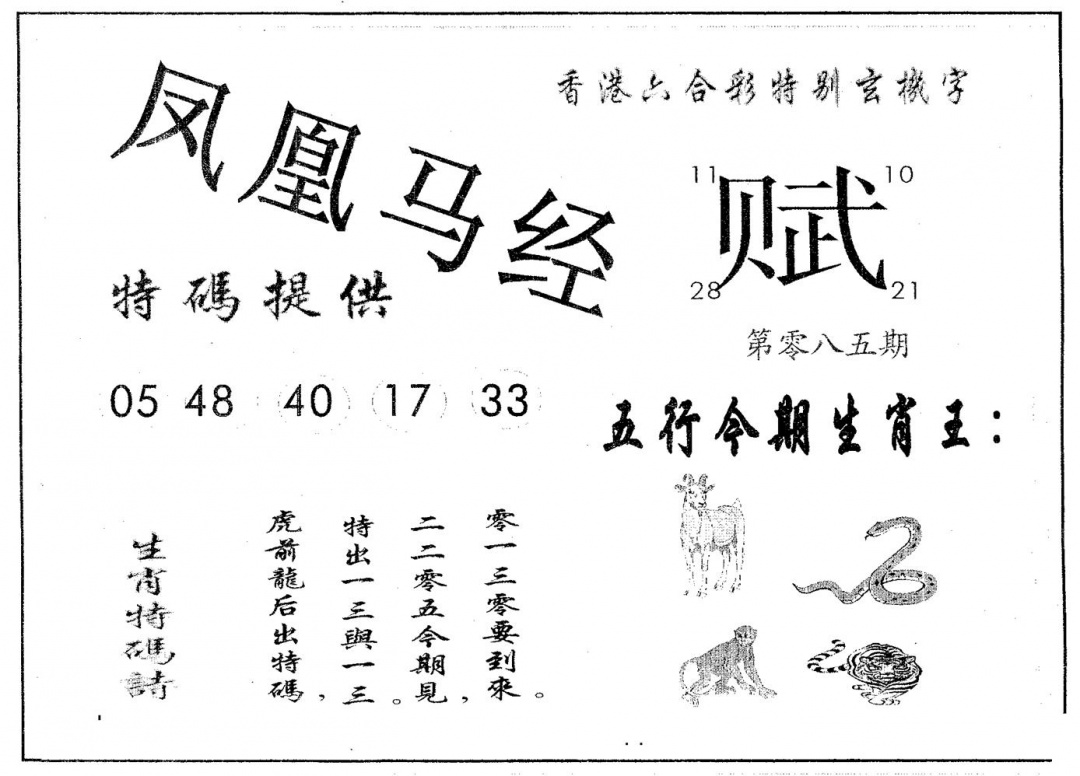 凤凰马经
香港六合彩特别玄機字
11
10
赋
28
21
第零八五期
特碼提供
05 48 40 17 33
五行今期生肖王：
生肖特碼詩
虎前龍后出特碼，
特出一三與一三。
二二零五今期見，
零一三零要到來。